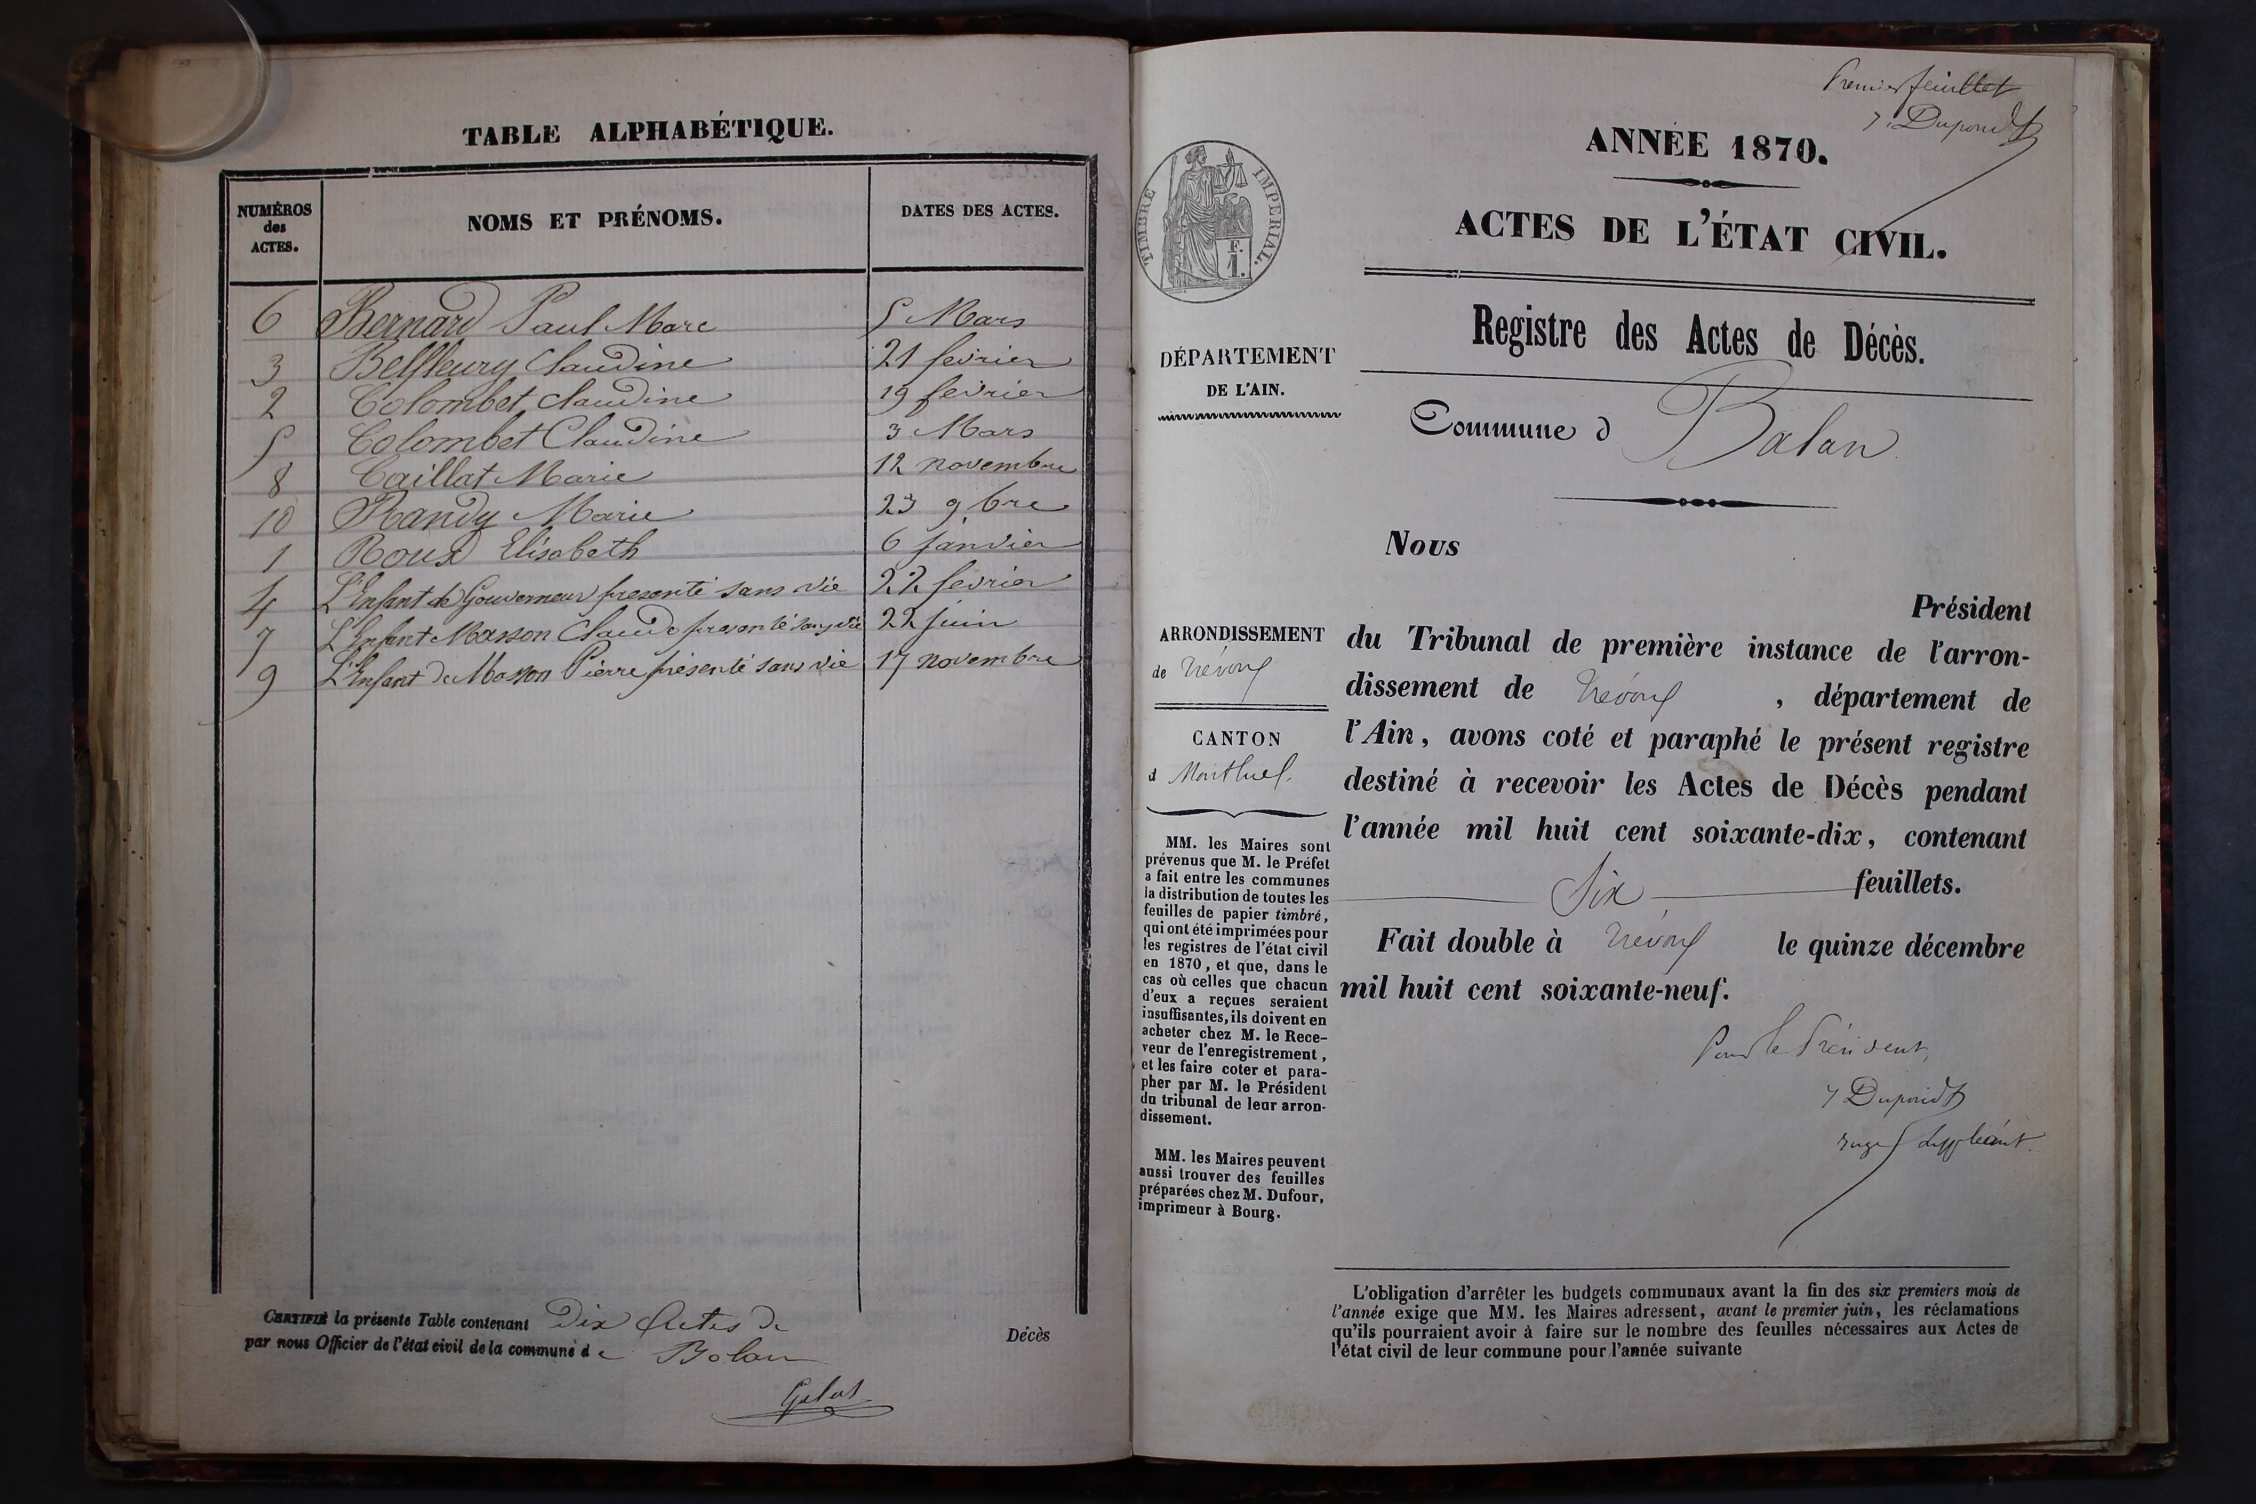 TABLE ALPHABÉTIQUE.
NUMÉROS des ACTES.
NOMS ET PRÉNOMS.
DATES DES ACTES.
6 Bernard Paul Marc 5 Mars
3 Belfleury Claudine 21 fevrier
2 Colombet Claudine 19 fevrier
5 Colombet Claudine 3 Mars
8 Caillat Marie 12 novembre
10 Randy Marie 23 9bre
1 Roux Elisabeth 6 janvier
4 L'Enfant de Gouverneur presenté sans vie 22 fevrier
7 L'Enfant Masson Claude presenté sans vie 22 juin
9 L'Enfant de Masson Pierre présenté sans vie 17 novembre
CERTIFIÉ la présente Table contenant Dix Actes de
Décès
par nous Officier de l'état civil de la commune de Balan
Premier feuillet
Dupond
ANNÉE 1870.
ACTES DE L'ÉTAT CIVIL.
TIMBRE IMPERIAL.
F.
1.
Registre des Actes de Décès.
DÉPARTEMENT
DE L'AIN.
Commune d Balan
Nous
Président
du Tribunal de première instance de l'arron-
dissement de Trévoux, département de
l'Ain, avons coté et paraphé le présent registre
destiné à recevoir les Actes de Décès pendant
l'année mil huit cent soixante-dix, contenant
Six feuillets.
Fait double à Trévoux le quinze décembre
mil huit cent soixante-neuf.
Pour le Président,
Dupond
Juge Suppléant.
ARRONDISSEMENT
de Trévoux
CANTON
d Montluel.
MM. les Maires sont
prévenus que M. le Préfet
a fait entre les communes
la distribution de toutes les
feuilles de papier timbré,
qui ont été imprimées pour
les registres de l'état civil
en 1870, et que, dans le
cas où celles que chacun
d'eux a reçues seraient
insuffisantes, ils doivent en
acheter chez M. le Rece-
veur de l'enregistrement,
et les faire coter et para-
pher par M. le Président
du tribunal de leur arron-
dissement.
MM. les Maires peuvent
aussi trouver des feuilles
préparées chez M. Dufour,
imprimeur à Bourg.
L'obligation d'arrêter les budgets communaux avant la fin des six premiers mois de
l'année exige que MM. les Maires adressent, avant le premier juin, les réclamations
qu'ils pourraient avoir à faire sur le nombre des feuilles nécessaires aux Actes de
l'état civil de leur commune pour l'année suivante